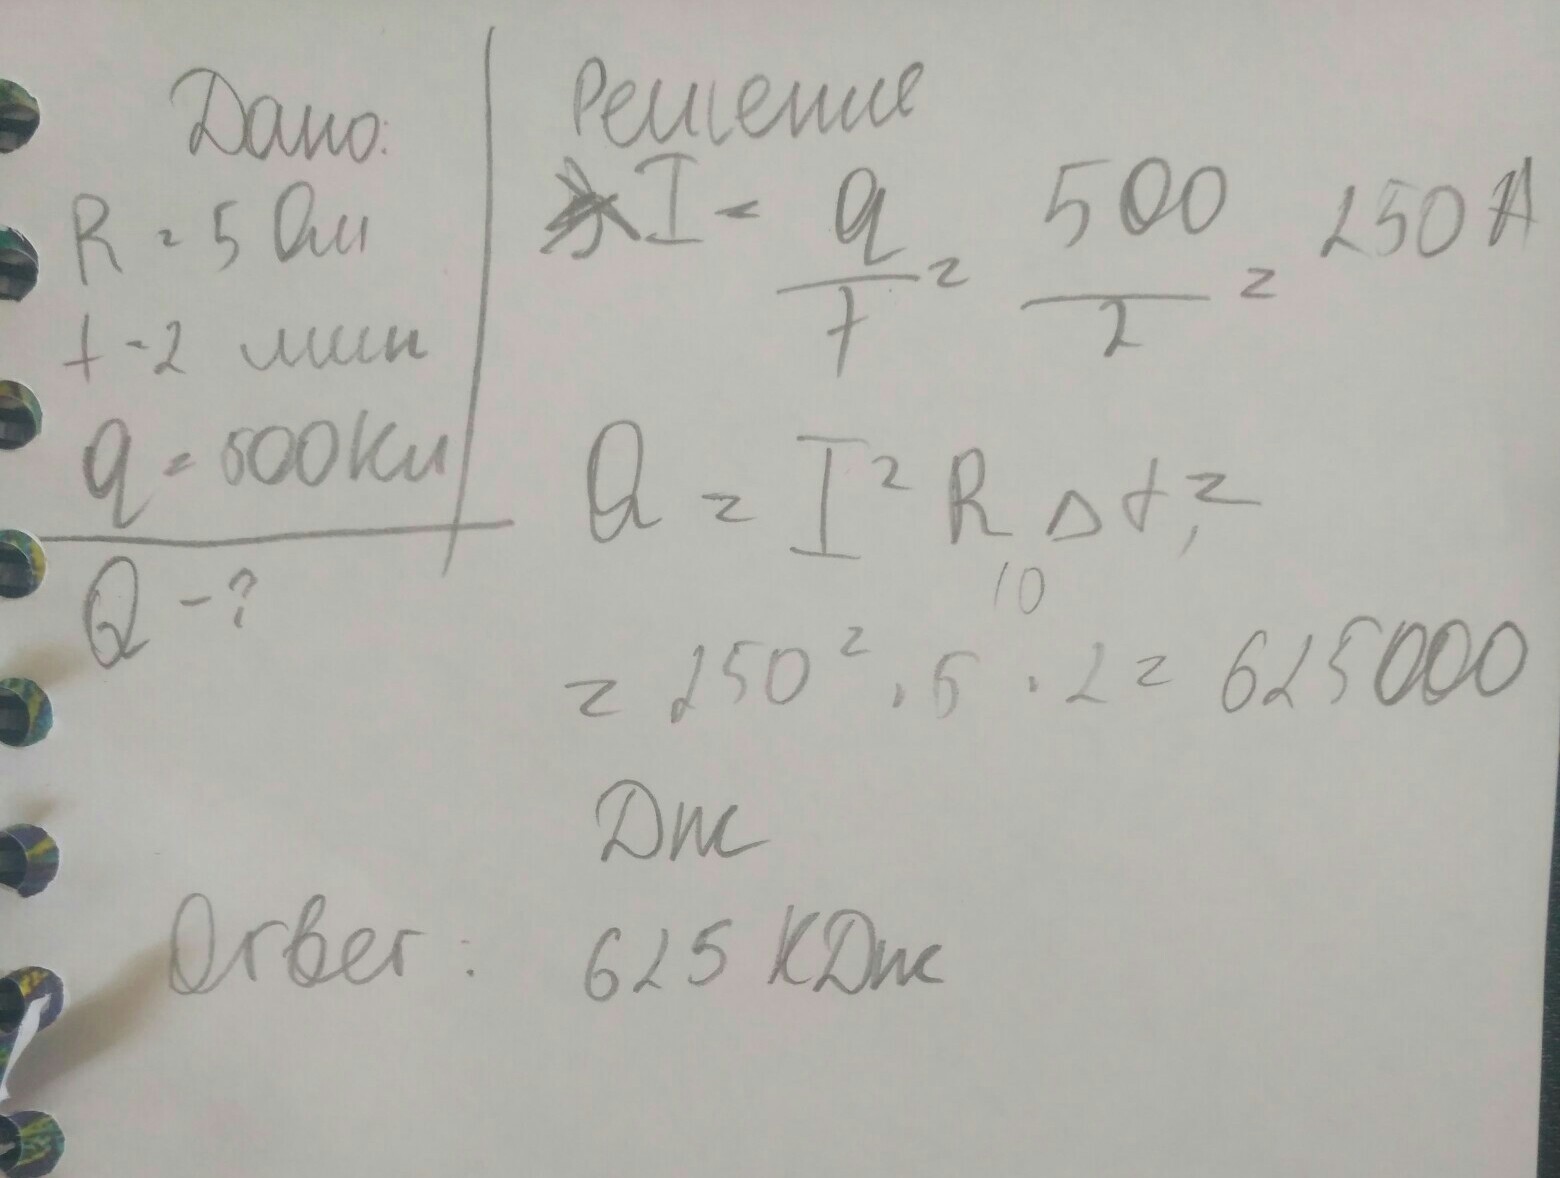 Дано:
R = 5 Ом
t - 2 мин
q = 500 Кл
Q - ?
Решение
I = q / t = 500 / 2 = 250 А
Q = I² R Δ t =
10
= 250² · 5 · 2 = 625000
Дж
Ответ: 625 КДж